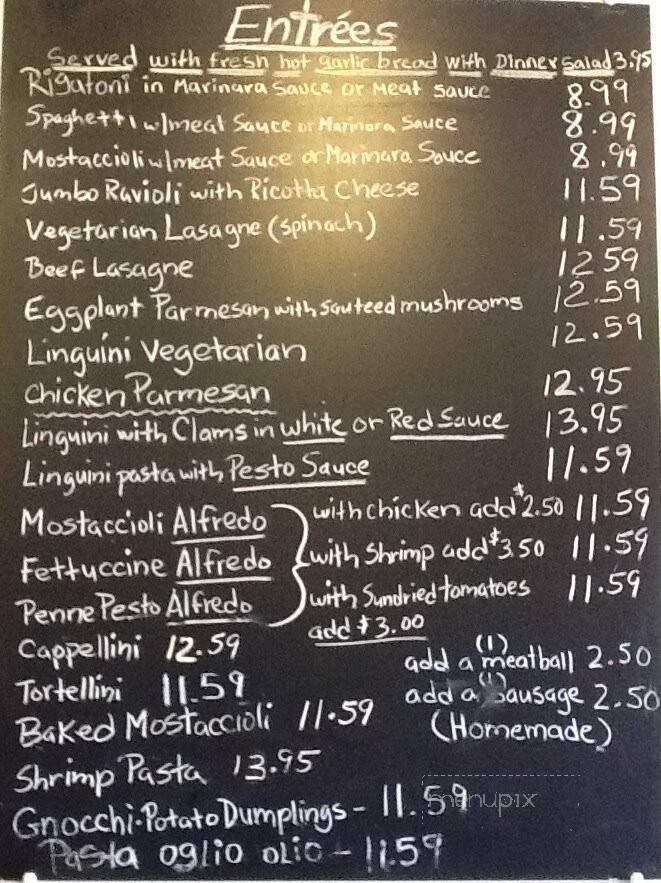 Entrées
Served with fresh hot garlic bread with Dinner Salad 3.95
Rigatoni in Marinara Sauce or Meat sauce 8.99
Spaghetti w/meat Sauce or Marinara Sauce 8.99
Mostaccioli w/meat Sauce or Marinara Sauce 8.99
Jumbo Ravioli with Ricotta Cheese 11.59
Vegetarian Lasagne (spinach) 11.59
Beef Lasagne 12 59
Eggplant Parmesan with Sauteed mushrooms 12.59
Linguini Vegetarian 12.59
Chicken Parmesan 12.95
Linguini with Clams in white or Red Sauce 13.95
Linguini pasta with Pesto Sauce 11.59
Mostaccioli Alfredo with chicken add $2.50 11.59
Fettuccine Alfredo with Shrimp add $3.50 11.59
Penne Pesto Alfredo with Sundried tomatoes 11.59
add $3.00
Cappellini 12.59
add a (1) meatball 2.50
Tortellini 11.59
add a (1) Sausage 2.50
Baked Mostaccioli 11.59
(Homemade)
Shrimp Pasta 13.95
Gnocchi-Potato Dumplings - 11.59
menupix
Pasta oglio olio - 11.59